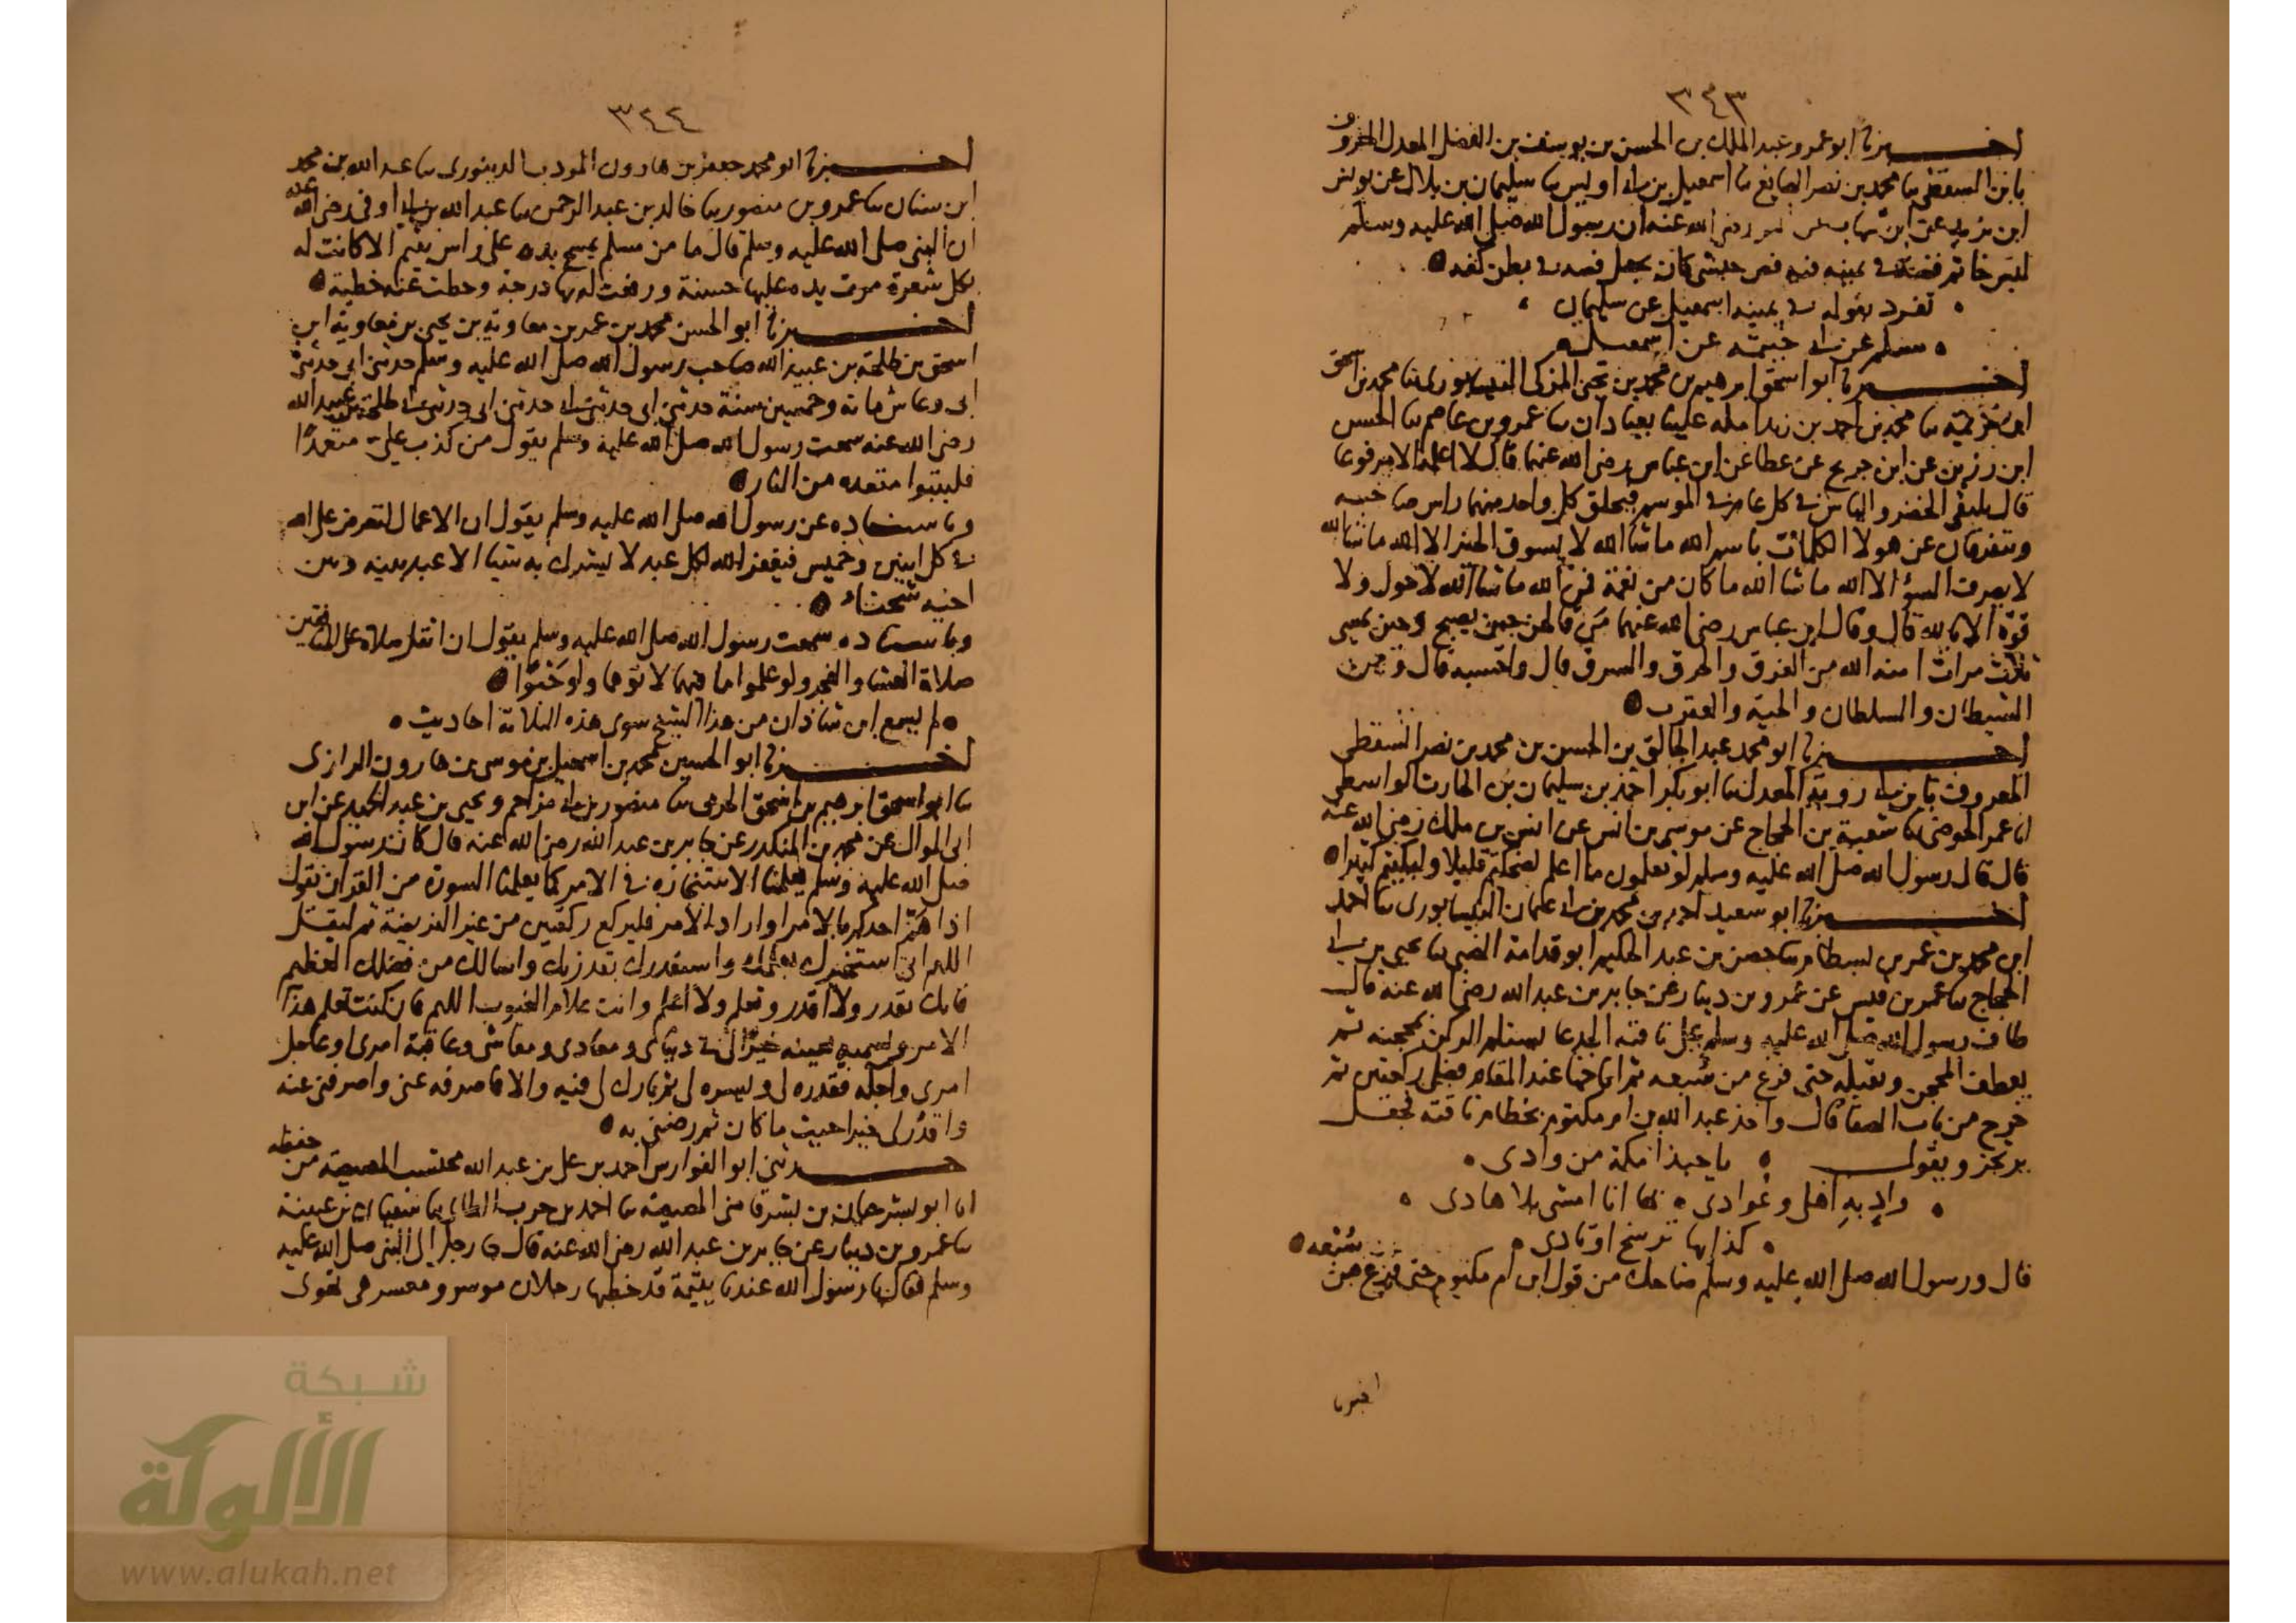 ٣٤٣
اخبرنا ابو عمرو عبد الملك بن الحسن بن يوسف بن الفضل المعدل المعروف
بابن السقطي نا محمد بن نصر الصايغ نا اسمعيل بن ابي اويس نا سليمان بن بلال عن يونس
ابن يزيد عن ابن شهاب عن انس رضي الله عنه ان رسول الله صلى الله عليه وسلم
لبس خاتم فضة في يمينه فيه فص حبشي كان يجعل فصه في بطن كفه
تفرد بقوله في يمينه اسمعيل عن سليمان
مسلم عن ابي خيثمة عن اسمعيل
اخبرنا ابو اسحق ابرهيم بن محمد بن يحيى المزكي النيسابوري نا محمد بن اسحق
ابن خزيمة نا محمد بن احمد بن زيد املاه علينا بعبادان نا عمرو بن عاصم نا الحسن
ابن رزين عن ابن جريج عن عطا عن ابن عباس رضي الله عنهما قال لا اعلمه الا مرفوعا
قال يلتقي الخضر والياس في كل عام في الموسم فيحلق كل واحد منهما راس صاحبه
ويتفرقان عن هولا الكلمات باسم الله ما شا الله لا يسوق الخير الا الله ما شا الله
لا يصرف السؤ الا الله ما شا الله ما كان من نعمة فمن الله ما شا الله لا حول ولا
قوة الا بالله قال وقال ابن عباس رضي الله عنهما من قالهن حين يصبح وحين يمسي
ثلاث مرات امنه الله من الغرق والحرق والسرق قال واحسبه قال ومن
الشيطان والسلطان والحية والعقرب
اخبرنا ابو محمد عبد الخالق بن الحسن بن محمد بن نصر السقطي
المعروف بابن ابي روبة المعدل نا ابو بكر احمد بن سليمان بن الحارث الواسطي
نا عمر الحوضي نا شعبة بن الحجاج عن موسى بن انس عن انس بن ملك رضي الله عنه
قال قال رسول الله صلى الله عليه وسلم لو تعلمون ما اعلم لضحكتم قليلا ولبكيتم كثيرا
اخبرنا ابو سعيد احمد بن محمد بن ابي عثمان النيسابوري نا احمد
ابن محمد بن عمر بن بسطام نا حصن بن عبد الحكيم ابو قدامة الضبي نا يحيى بن ابي
الحجاج نا عمر بن قيس عن عمرو بن دينار عن جابر بن عبد الله رضي الله عنه قال
طاف رسول الله صلى الله عليه وسلم على ناقته الجدعا يستلم الركن بمحجنه ثم
يعطف المحجن ويقبله حتى فرغ من سبعه ثم اناخها عند المقام فصلى ركعتين ثم
خرج من باب الصفا قال واخذ عبد الله بن ام مكتوم بخطام ناقته فجعل
يرتجز ويقول يا حبذا مكة من وادي
وادٍ بهِ اهلي وعُوادي بها انا امشي بلا هادي
كذا بها ترسخ اوتادي
قال ورسول الله صلى الله عليه وسلم ضاحك من قول ابن ام مكتوم حتى فرغ من سُبعه
اخبرنا
٣٤٤
اخبرنا ابو محمد جعفر بن هارون المودب الدينوري نا عبد الله بن محمد
ابن سنان نا عمرو بن منصور نا خالد بن عبد الرحمن نا عبد الله بن ابي اوفى رضي الله عنه
ان النبي صلى الله عليه وسلم قال ما من مسلم يمسح يده على راس يتيم الا كانت له
بكل شعرة مرت يده عليها حسنة ورفعت له بها درجة وحطت عنه خطية
اخبرنا ابو الحسن محمد بن عمر بن معاوية بن يحيى بن معاوية ابن
اسحق بن طلحة بن عبيد الله صاحب رسول الله صلى الله عليه وسلم حدثني ابي حدثني
ابي وعاش ماية وخمسين سنة حدثني ابي حدثني ابي حدثني ابي حدثني ابي طلحة بن عبيد الله
رضي الله عنه سمعت رسول الله صلى الله عليه وسلم يقول من كذب علي متعمدًا
فليتبوا مقعده من النار
وباسناده عن رسول الله صلى الله عليه وسلم يقول ان الاعمال لتعرض على الله
في كل اثنين وخميس فيغفر الله لكل عبد لا يشرك به شيا الا عبد بينه وبين
اخيه شحناء
وباسناده سمعت رسول الله صلى الله عليه وسلم يقول ان اثقل صلاة على المنافقين
صلاة العشا والفجر ولو علموا ما فيهما لاتوهما ولو حَبْوًا
لم يسمع ابن شاذان من هذا الشيخ سوى هذه الثلاثة احاديث
اخبرنا ابو الحسين محمد بن اسمعيل بن موسى بن هارون الرازي
نا ابو اسحق ابرهيم بن اسحق الحرمي نا منصور بن ابي مزاحم ويحيى بن عبد الحميد عن ابن
ابي الموال عن محمد بن المنكدر عن جابر بن عبد الله رضي الله عنه قال كان رسول الله
صلى الله عليه وسلم يعلمنا الاستخارة في الامر كما يعلمنا السورة من القران يقول
اذا هَمَّ احدكم بالامر او اراد الامر فليركع ركعتين من غير الفريضة ثم ليقل
اللهم اني استخيرك بعلمك واستقدرك بقدرتك واسالك من فضلك العظيم
فانك تقدر ولا اقدر وتعلم ولا اعلم وانت علام الغيوب اللهم فان كنت تعلم هذا
الامر ويسميه بعينه خيرًا لي في ديني ومعادي ومعاشي وعاقبة امري او عاجل
امري واجله فقدره لي ويسره لي ثم بارك لي فيه والا فاصرفه عني واصرفني عنه
واقدُر لي خيرا حيث ما كان ثم رضني به
حدثني ابو الفوارس احمد بن علي بن عبد الله محتسب المصيصة من حفظه
انا ابو بشر حيان بن بشر قاضي المصيصة نا احمد بن حرب الطائي نا سفيان بن عيينة
نا عمرو بن دينار عن جابر بن عبد الله رضي الله عنه قال جا رجل الى النبي صلى الله عليه
وسلم فقال يا رسول الله عندنا يتيمة قد خطبها رجلان موسر ومعسر هي تهوى
شبكة
الألوكة
www.alukah.net